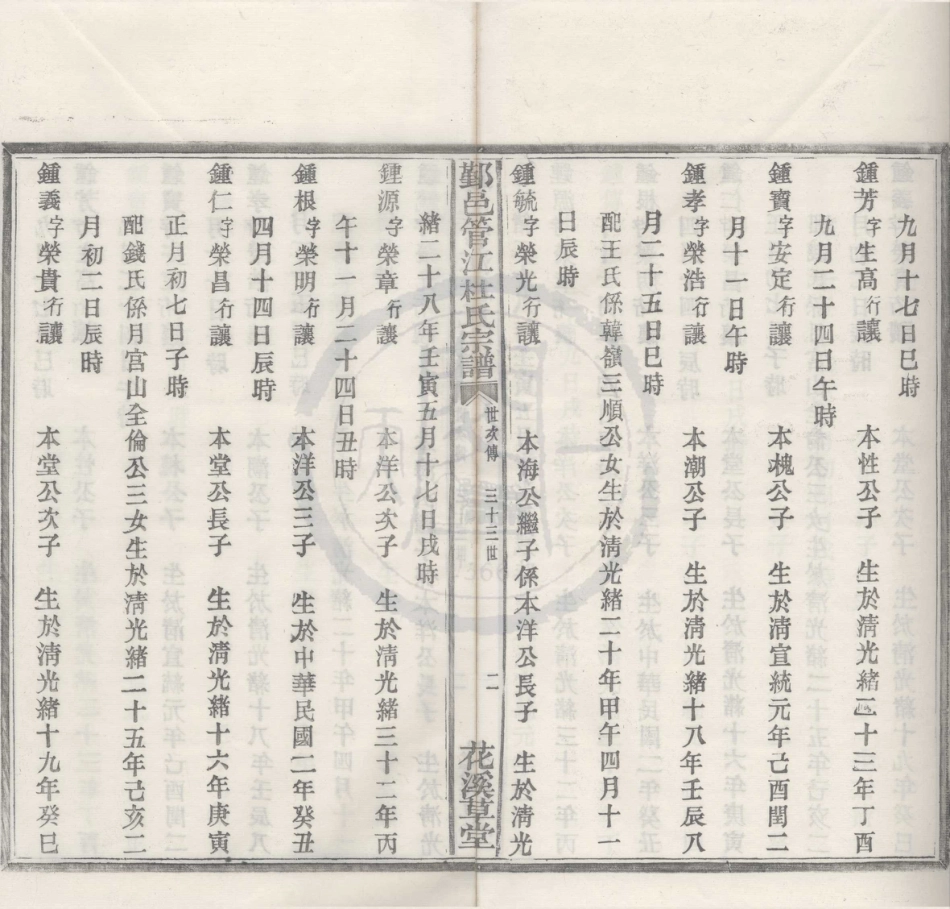 九月十七日巳時
鍾芳字生高行讓 本性公子 生於清光緒二十三年丁酉
九月二十四日午時
鍾寳字安定行讓 本槐公子 生於清宣統元年己酉閏二
月十一日午時
鍾孝字榮浩行讓 本潮公子 生於清光緒十八年壬辰八
月二十五日巳時
配王氏係韓嶺三順公女生於清光緒二十年甲午四月十一
日辰時
鍾毓字榮光行讓 本海公繼子係本洋公長子 生於清光
鄞邑管江杜氏宗譜 世次傳 三十三世 二 花溪草堂
緒二十八年壬寅五月十七日戌時
鍾源字榮章行讓 本洋公次子 生於清光緒三十二年丙
午十一月二十四日丑時
鍾根字榮明行讓 本洋公三子 生於中華民國二年癸丑
四月十四日辰時
鍾仁字榮昌行讓 本堂公長子 生於清光緒十六年庚寅
正月初七日子時
配錢氏係月宫山全倫公三女生於清光緒二十五年己亥二
月初二日辰時
鍾義字榮貴行讓 本堂公次子 生於清光緒十九年癸巳